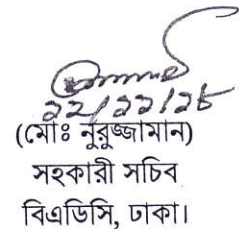 ২২/১১/১৮
(মোঃ নুরুজ্জামান)
সহকারী সচিব
বিএডিসি, ঢাকা।